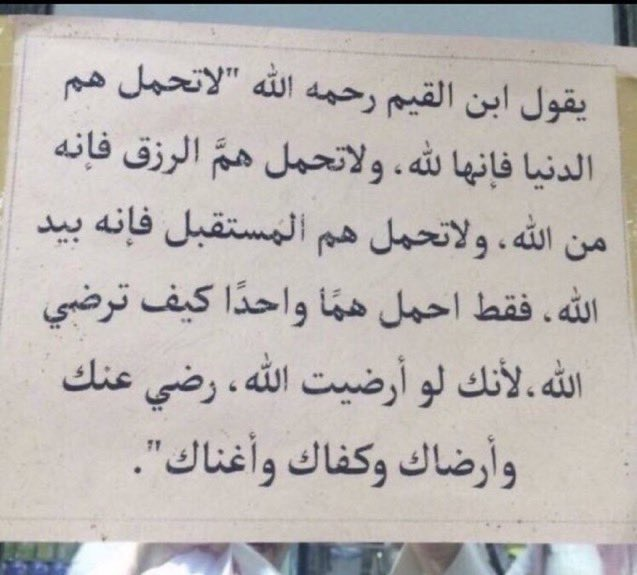 يقول ابن القيم رحمه الله "لاتحمل هم
الدنيا فإنها لله، ولاتحمل همَّ الرزق فإنه
من الله، ولاتحمل هم المستقبل فإنه بيد
الله، فقط احمل همًا واحدًا كيف ترضي
الله،لأنك لو أرضيت الله، رضي عنك
وأرضاك وكفاك وأغناك".